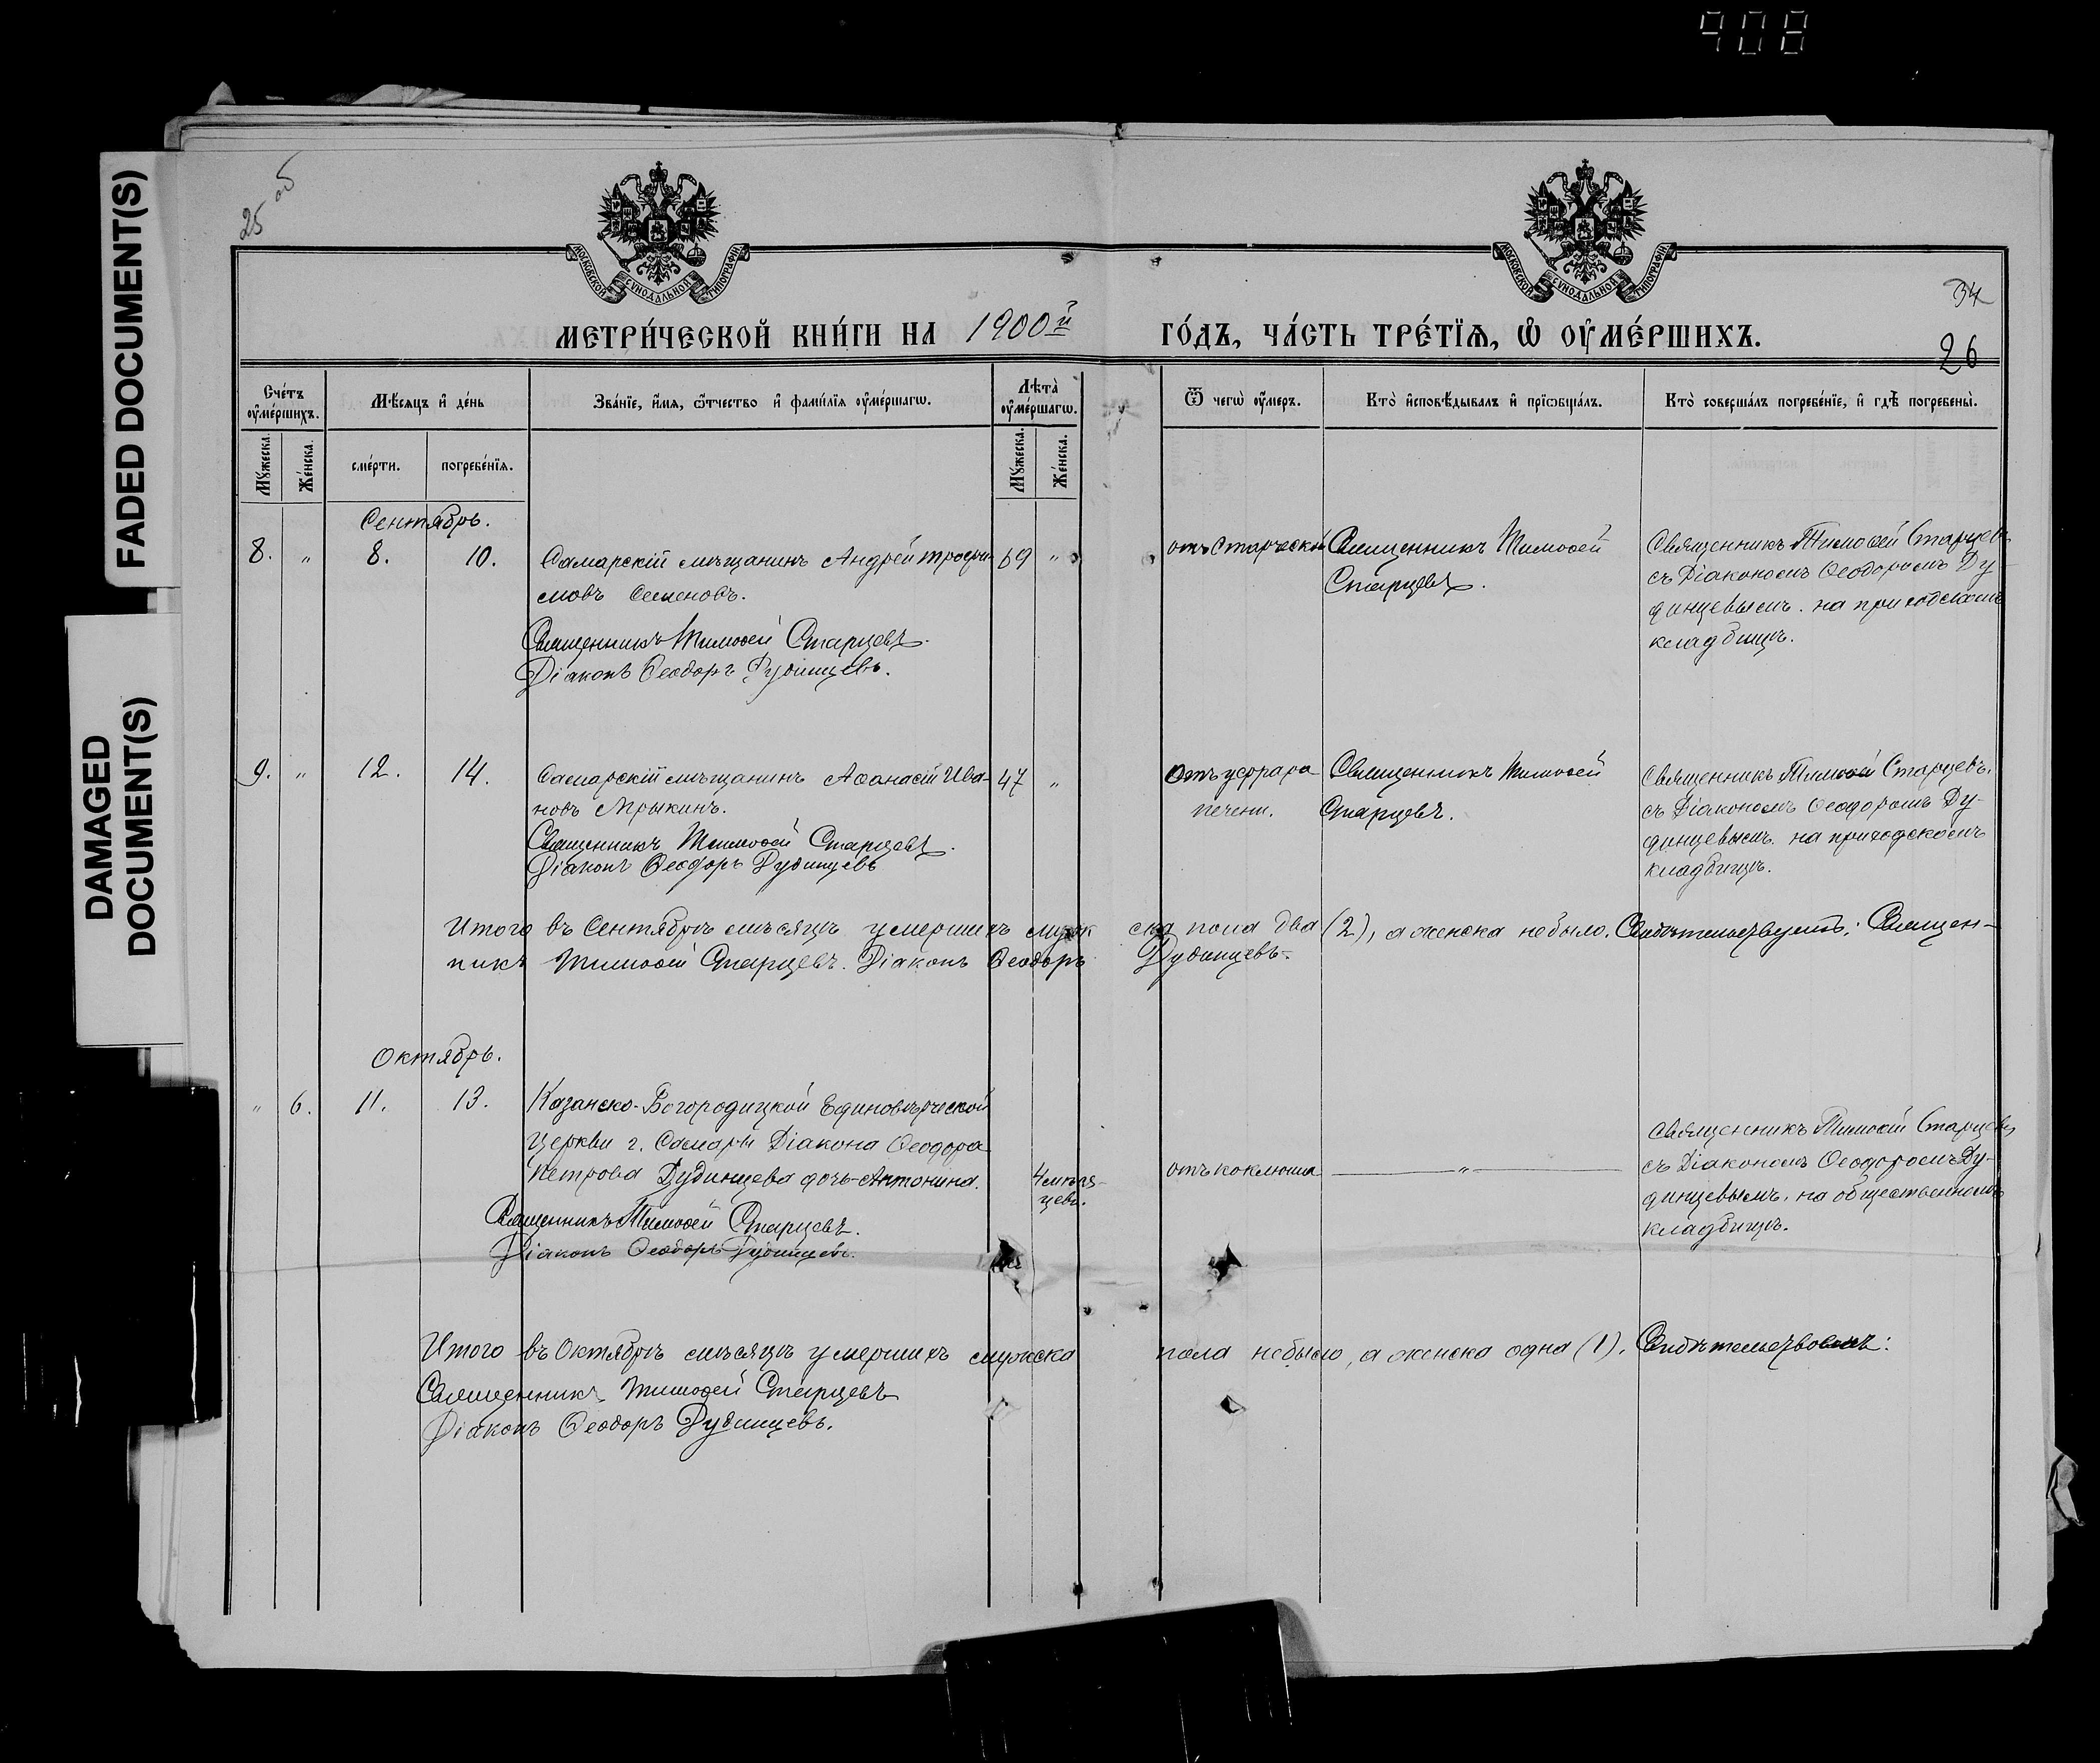 408
FADED DOCUMENT(S)
DAMAGED
DOCUMENT(S)
25 об
34
26
МОСКОВСКОЙ СѴНОДАЛЬНОЙ ТИПОГРАФІИ
МОСКОВСКОЙ СѴНОДАЛЬНОЙ ТИПОГРАФІИ
МЕТРИ́ЧЕСКОЙ КНИ́ГИ НА 1900й ГО́ДЪ, ЧА́СТЬ ТРЕ́ТЇѦ, Ѡ҆ ОУ҆МЕ́РШИХЪ.
Сче́тъ
оу҆ме́ршихъ.
Мꙋ́жеска.
Же́нска.
Мѣ́сяцъ и҆ де́нь
сме́рти.
погребе́нїѧ.
Зва́нїе, и҆́мѧ, ѻ҆́тчество и҆ фами́лїѧ оу҆ме́ршагѡ.
Лѣ̑та
оу҆ме́ршагѡ.
Мꙋ́жеска.
Же́нска.
Ѿ чегѡ̀ оу҆́меръ.
Кто̀ и҆сповѣ́дывалъ и҆ прїѡбща́лъ.
Кто̀ соверша́лъ погребе́нїе, и҆ гдѣ̀ погребены̀.
Сентябрь.
8. " 8. 10. Самарскій мѣщанинъ Андрей Трофи- 69 "
мовъ Семеновъ.
Священникъ Тимоѳей Старцевъ.
Діаконъ Ѳеодоръ Дудинцевъ.
отъ старческой
Священникъ Тимоѳей
Старцевъ.
Священникъ Тимоѳей Старцевъ
съ Діакономъ Ѳеодоромъ Ду-
динцевымъ. на приходскомъ
кладбищѣ.
9. " 12. 14. Самарскій мѣщанинъ Аѳанасій Ива- 47 "
новъ Мрыкинъ.
Священникъ Тимоѳей Старцевъ.
Діаконъ Ѳеодоръ Дудинцевъ
Отъ церрара
печени.
Священникъ Тимоѳей
Старцевъ.
Священникъ Тимоѳей Старцевъ.
съ Діакономъ Ѳеодоромъ Ду-
динцевымъ. на приходскомъ
кладбищѣ.
Итого въ Сентябрѣ мѣсяцѣ умершихъ мужеска пола два (2), а женска небыло. Свидѣтельствуютъ: Священ-
никъ Тимоѳей Старцевъ. Діаконъ Ѳеодоръ Дудинцевъ.
Октябрь.
" 6. 11. 13. Казанско-Богородицкой Единовѣрческой
церкви г. Самары Діакона Ѳеодора
Петрова Дудинцева дочь Антонина.
4 мѣся-
цевъ.
Священникъ Тимоѳей Старцевъ.
Діаконъ Ѳеодоръ Дудинцевъ.
отъ коклюша
"
Священникъ Тимоѳей Старцевъ
съ Діакономъ Ѳеодоромъ Ду-
динцевымъ. на общественномъ
кладбищѣ.
Итого въ Октябрѣ мѣсяцѣ умершихъ мужеска пола небыло, а женска одна (1).
Священникъ Тимоѳей Старцевъ
Діаконъ Ѳеодоръ Дудинцевъ.